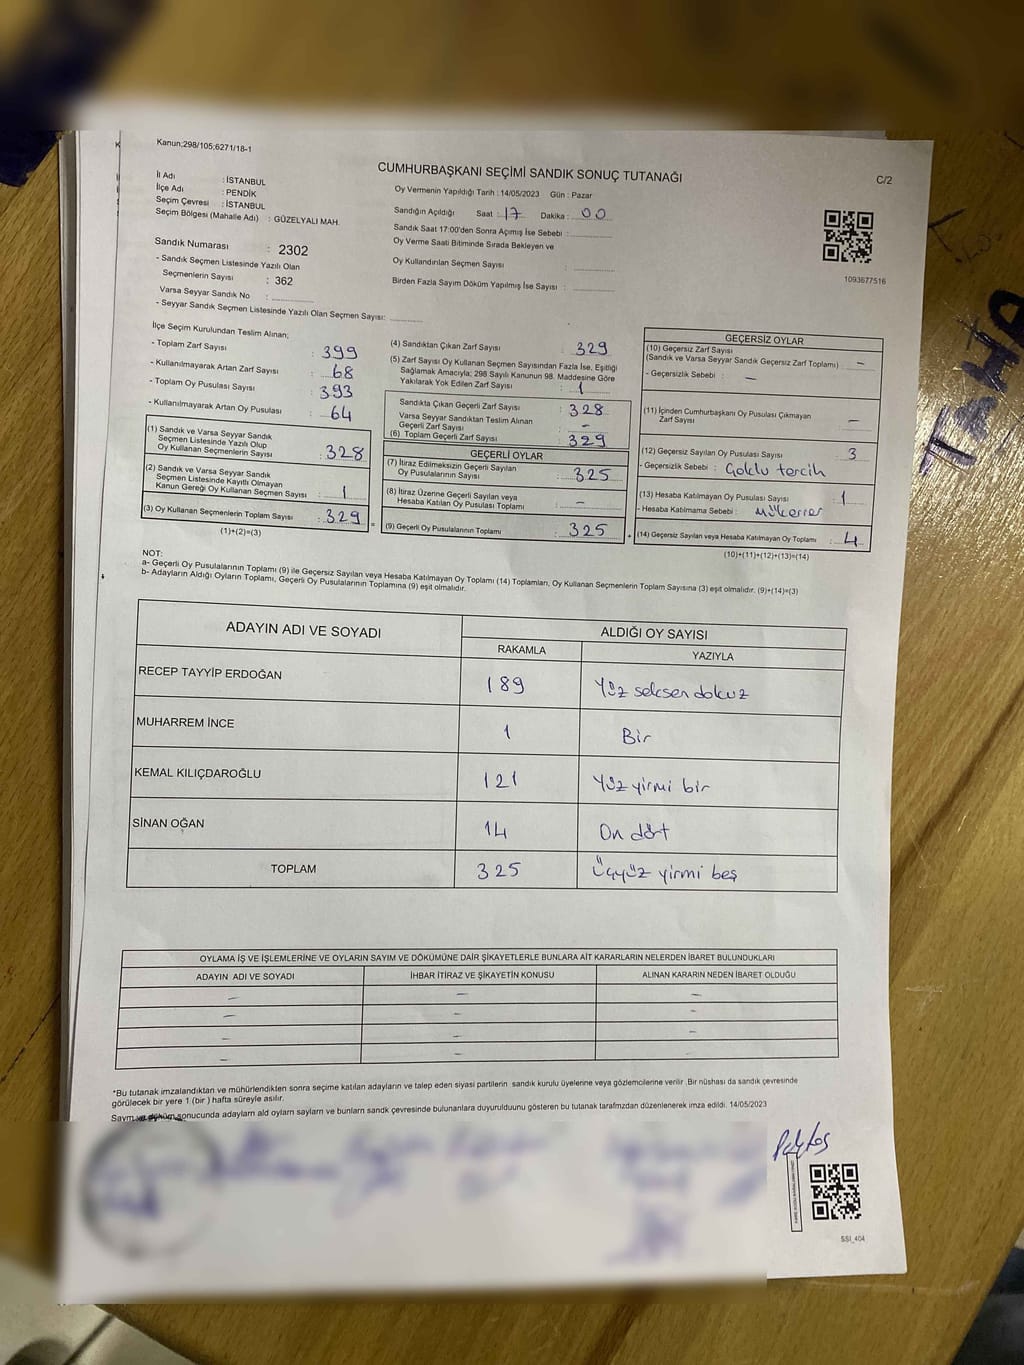 Kanun;298/105;6271/18-1
CUMHURBAŞKANI SEÇİMİ SANDIK SONUÇ TUTANAĞI
C/2
İl Adı : İSTANBUL
İlçe Adı : PENDİK
Seçim Çevresi : İSTANBUL
Seçim Bölgesi (Mahalle Adı) : GÜZELYALI MAH.
Sandık Numarası : 2302
- Sandık Seçmen Listesinde Yazılı Olan
Seçmenlerin Sayısı : 362
Varsa Seyyar Sandık No :
- Seyyar Sandık Seçmen Listesinde Yazılı Olan Seçmen Sayısı:
Oy Vermenin Yapıldığı Tarih : 14/05/2023 Gün : Pazar
Sandığın Açıldığı Saat : 17 Dakika : 00
Sandık Saat 17:00'den Sonra Açımış İse Sebebi :
Oy Verme Saati Bitiminde Sırada Bekleyen ve
Oy Kullandırılan Seçmen Sayısı :
Birden Fazla Sayım Döküm Yapılmış İse Sayısı :
1093677516
İlçe Seçim Kurulundan Teslim Alınan;
- Toplam Zarf Sayısı : 399
- Kullanılmayarak Artan Zarf Sayısı : 68
- Toplam Oy Pusulası Sayısı : 393
- Kullanılmayarak Artan Oy Pusulası : 64
(1) Sandık ve Varsa Seyyar Sandık
Seçmen Listesinde Yazılı Olup
Oy Kullanan Seçmenlerin Sayısı : 328
(2) Sandık ve Varsa Seyyar Sandık
Seçmen Listesinde Kayıtlı Olmayan
Kanun Gereği Oy Kullanan Seçmen Sayısı : 1
(3) Oy Kullanan Seçmenlerin Toplam Sayısı : 329
(1)+(2)=(3)
(4) Sandıktan Çıkan Zarf Sayısı : 329
(5) Zarf Sayısı Oy Kullanan Seçmen Sayısından Fazla İse, Eşitliği
Sağlamak Amacıyla; 298 Sayılı Kanunun 98. Maddesine Göre
Yakılarak Yok Edilen Zarf Sayısı : 1
Sandıkta Çıkan Geçerli Zarf Sayısı : 328
Varsa Seyyar Sandıktan Teslim Alınan
Geçerli Zarf Sayısı : -
(6) Toplam Geçerli Zarf Sayısı : 329
GEÇERLİ OYLAR
(7) İtiraz Edilmeksizin Geçerli Sayılan
Oy Pusulalarının Sayısı : 325
(8) İtiraz Üzerine Geçerli Sayılan veya
Hesaba Katılan Oy Pusulası Toplamı : -
(9) Geçerli Oy Pusulalarının Toplamı : 325
GEÇERSİZ OYLAR
(10) Geçersiz Zarf Sayısı
(Sandık ve Varsa Seyyar Sandık Geçersiz Zarf Toplamı) : -
- Geçersizlik Sebebi : -
(11) İçinden Cumhurbaşkanı Oy Pusulası Çıkmayan
Zarf Sayısı : -
(12) Geçersiz Sayılan Oy Pusulası Sayısı : 3
- Geçersizlik Sebebi : Çoklu tercih
(13) Hesaba Katılmayan Oy Pusulası Sayısı : 1
- Hesaba Katılmama Sebebi : Mükerrer
(14) Geçersiz Sayılan veya Hesaba Katılmayan Oy Toplamı : 4
(10)+(11)+(12)+(13)=(14)
NOT:
a- Geçerli Oy Pusulalarının Toplamı (9) ile Geçersiz Sayılan veya Hesaba Katılmayan Oy Toplamı (14) Toplamları, Oy Kullanan Seçmenlerin Toplam Sayısına (3) eşit olmalıdır. (9)+(14)=(3)
b- Adayların Aldığı Oyların Toplamı, Geçerli Oy Pusulalarının Toplamına (9) eşit olmalıdır.
ADAYIN ADI VE SOYADI ALDIĞI OY SAYISI
RAKAMLA YAZIYLA
RECEP TAYYİP ERDOĞAN 189 Yüz seksen dokuz
MUHARREM İNCE 1 Bir
KEMAL KILIÇDAROĞLU 121 Yüz yirmi bir
SİNAN OĞAN 14 On dört
TOPLAM 325 Üçyüz yirmi beş
OYLAMA İŞ VE İŞLEMLERİNE VE OYLARIN SAYIM VE DÖKÜMÜNE DAİR ŞİKAYETLERLE BUNLARA AİT KARARLARIN NELERDEN İBARET BULUNDUKLARI
ADAYIN ADI VE SOYADI İHBAR İTİRAZ VE ŞİKAYETİN KONUSU ALINAN KARARIN NEDEN İBARET OLDUĞU
- - -
- - -
- - -
- - -
*Bu tutanak imzalandıktan ve mühürlendikten sonra seçime katılan adayların ve talep eden siyasi partilerin sandık kurulu üyelerine veya gözlemcilerine verilir .Bir nüshası da sandık çevresinde
görülecek bir yere 1 (bir ) hafta süreyle asılır.
Saym ve döküm sonucunda adaylarn ald oylarn saylarn ve bunlarn sandk çevresinde bulunanlara duyurulduunu gösteren bu tutanak tarafmzdan düzenlenerek imza edildi. 14/05/2023
SSİ_404